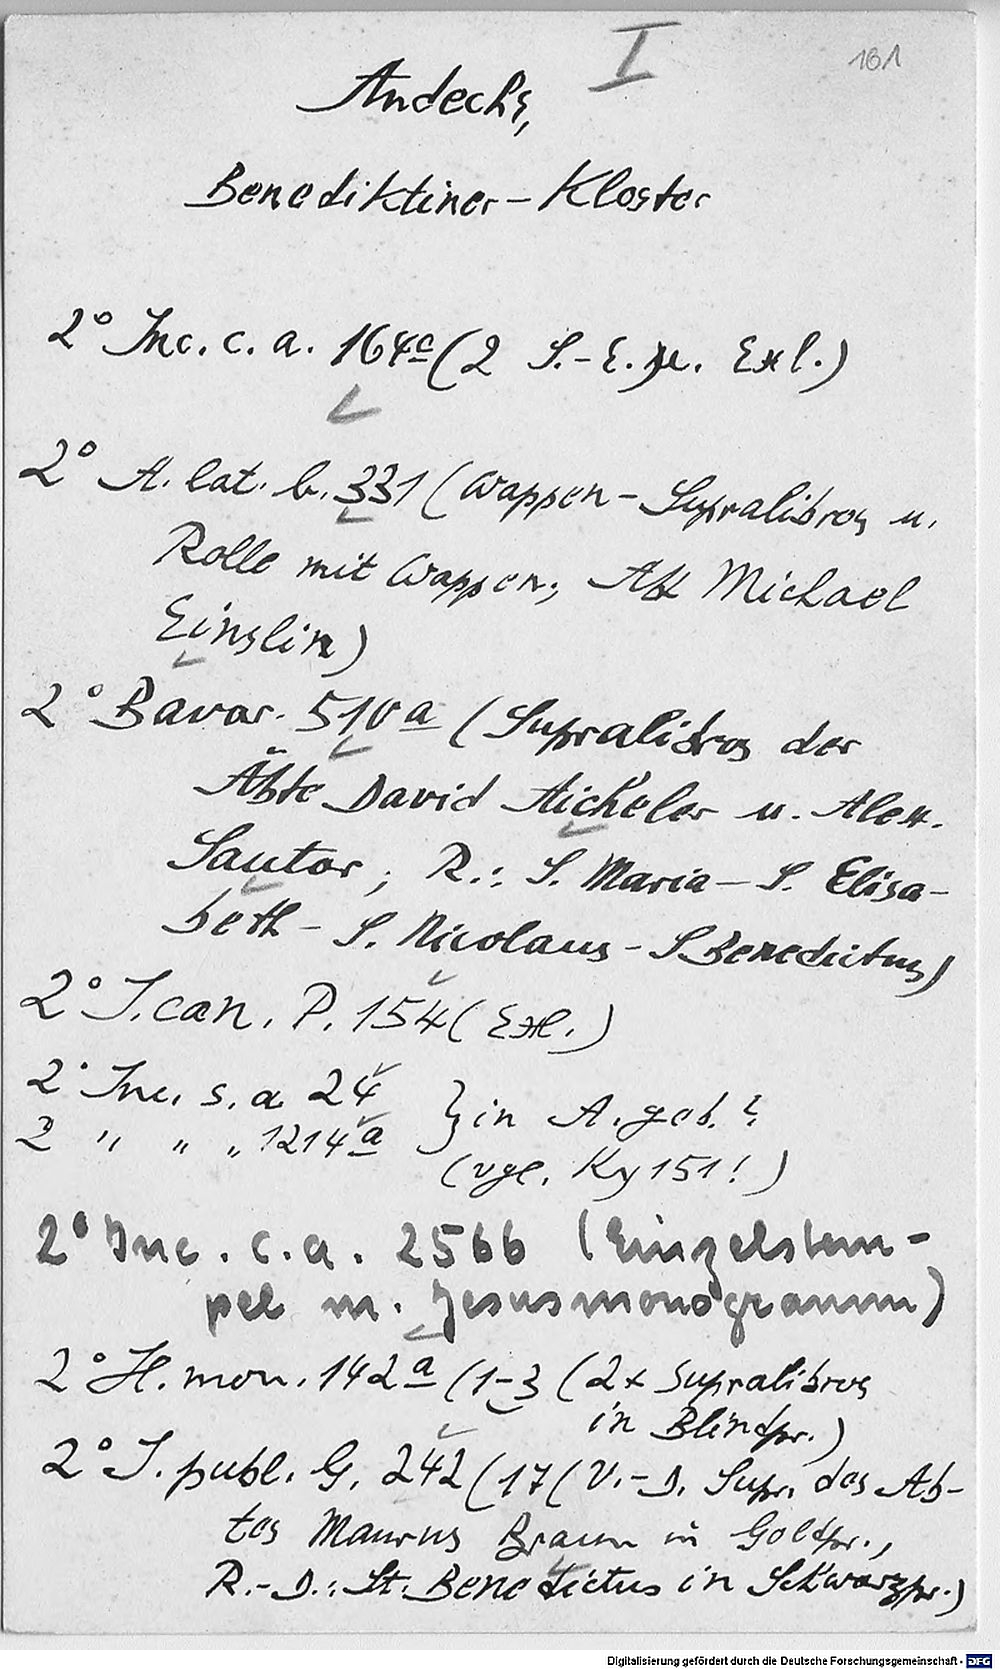 I
181
Andechs,
Benediktiner-Kloster
2° Inc. c. a. 164c (2 S.-E. u. Exl.)
2° A. lat. b. 331 (Wappen-Supralibros u.
Rolle mit Wappen; Abt Michael
Einslin)
2° Bavar. 510a (Supralibros der
Äbte David Aicheler u. Alex.
Sautor; R.: S. Maria - S. Elisa-
beth - S. Nicolaus - S Benedictus)
2° J. can. P. 154 (Exl.)
2° Inc. s. a 24 } in A. geb.?
2 " " " 1214a (vgl. Ky 151!)
2° Inc. c. a. 2566 (Einzelstem-
pel m. Jesusmonogramm)
2° H. mon. 142a (1-3 (2x Supralibros
in Blindpr.)
2° J. publ. G. 242 (17 (V.-D. Supr. des Ab-
tes Maurus Braun in Goldpr.,
R.-D.: St. Benedictus in Schwarzpr.)
Digitalisierung gefördert durch die Deutsche Forschungsgemeinschaft - DFG